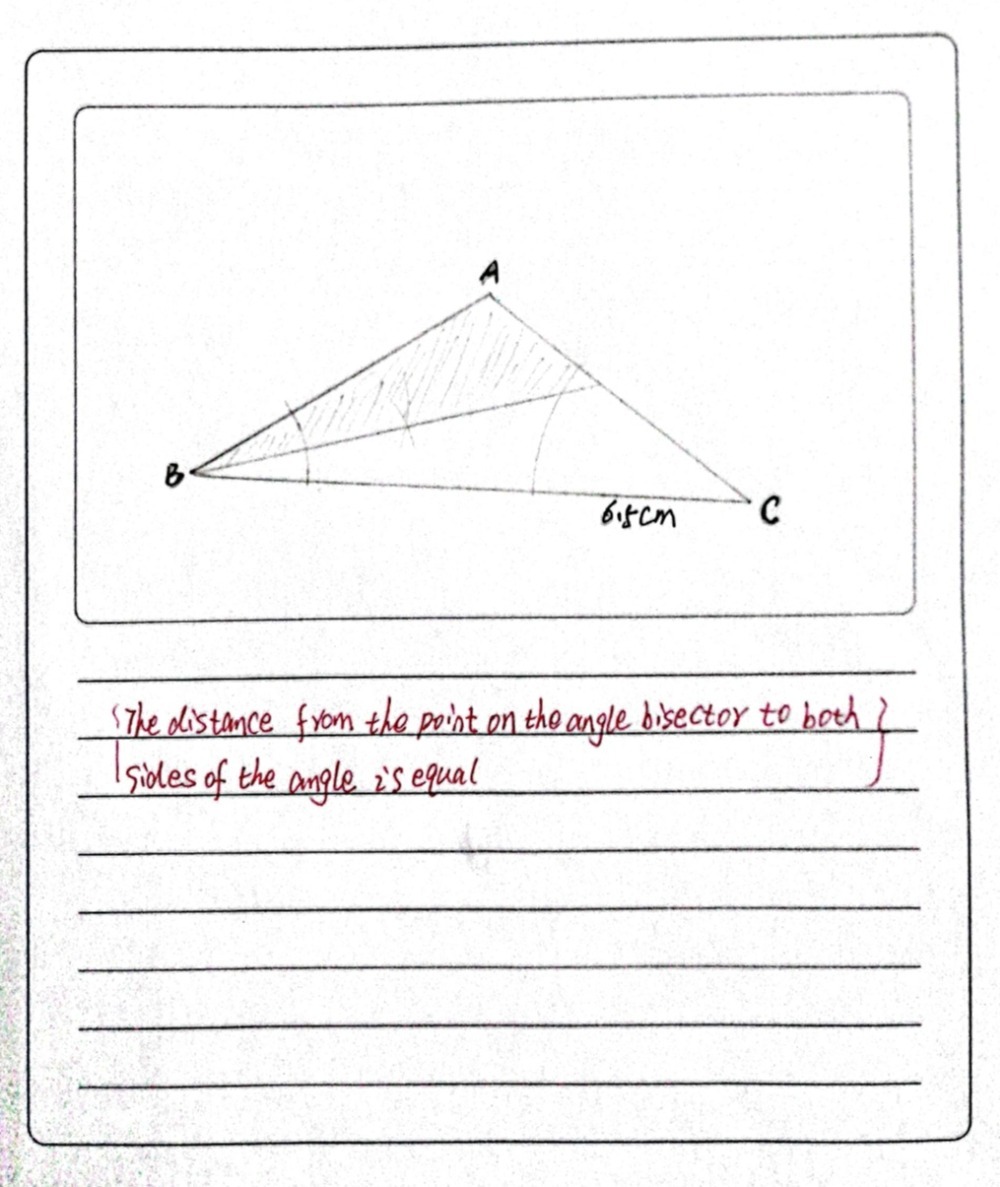 A
B
C
6.5cm
The distance from the point on the angle bisector to both
sides of the angle is equal